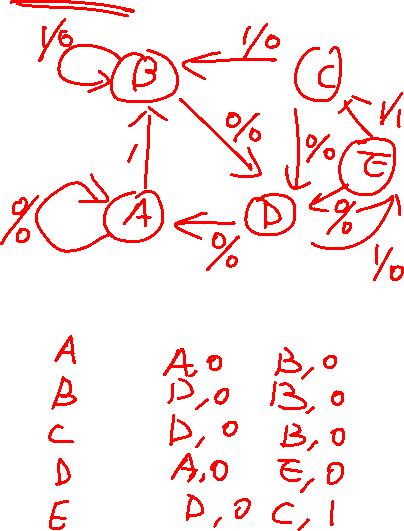 1/0
1/0
B
C
1/1
0/0
0/0
E
A
D
0/0
0/0
0/0
1/0
A A,0 B,0
B D,0 B,0
C D,0 B,0
D A,0 E,0
E D,0 C,1